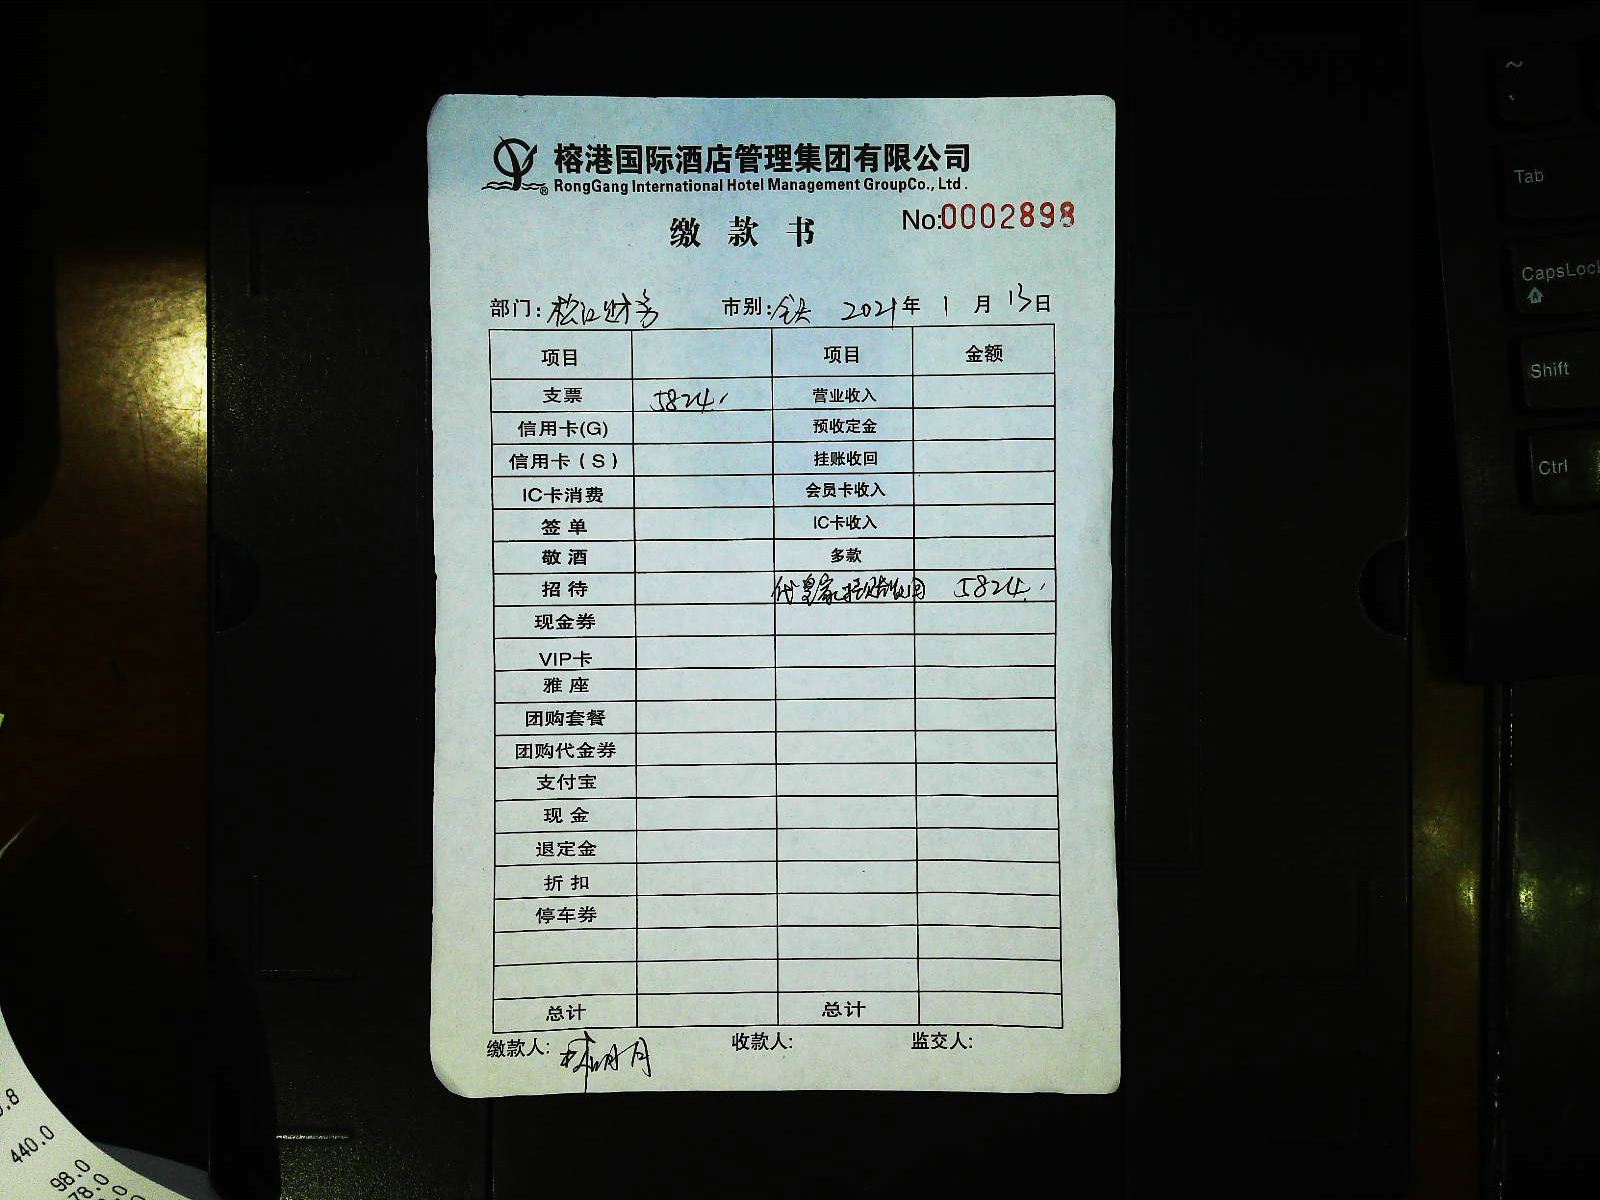 榕港国际酒店管理集团有限公司
RongGang International Hotel Management GroupCo., Ltd.
缴 款 书
No:0002898
部门: 松江财务 市别: 2021年 1 月 13日
项目 项目 金额
支票 5824. 营业收入
信用卡(G) 预收定金
信用卡(S) 挂账收回
IC卡消费 会员卡收入
签单 IC卡收入
敬酒 多款
招待 代皇家挂账收回 5824.
现金券
VIP卡
雅座
团购套餐
团购代金券
支付宝
现金
退定金
折扣
停车券
总计 总计
缴款人: 收款人: 监交人:
~
Tab
CapsLock
Shift
Ctrl
440.0
98.0